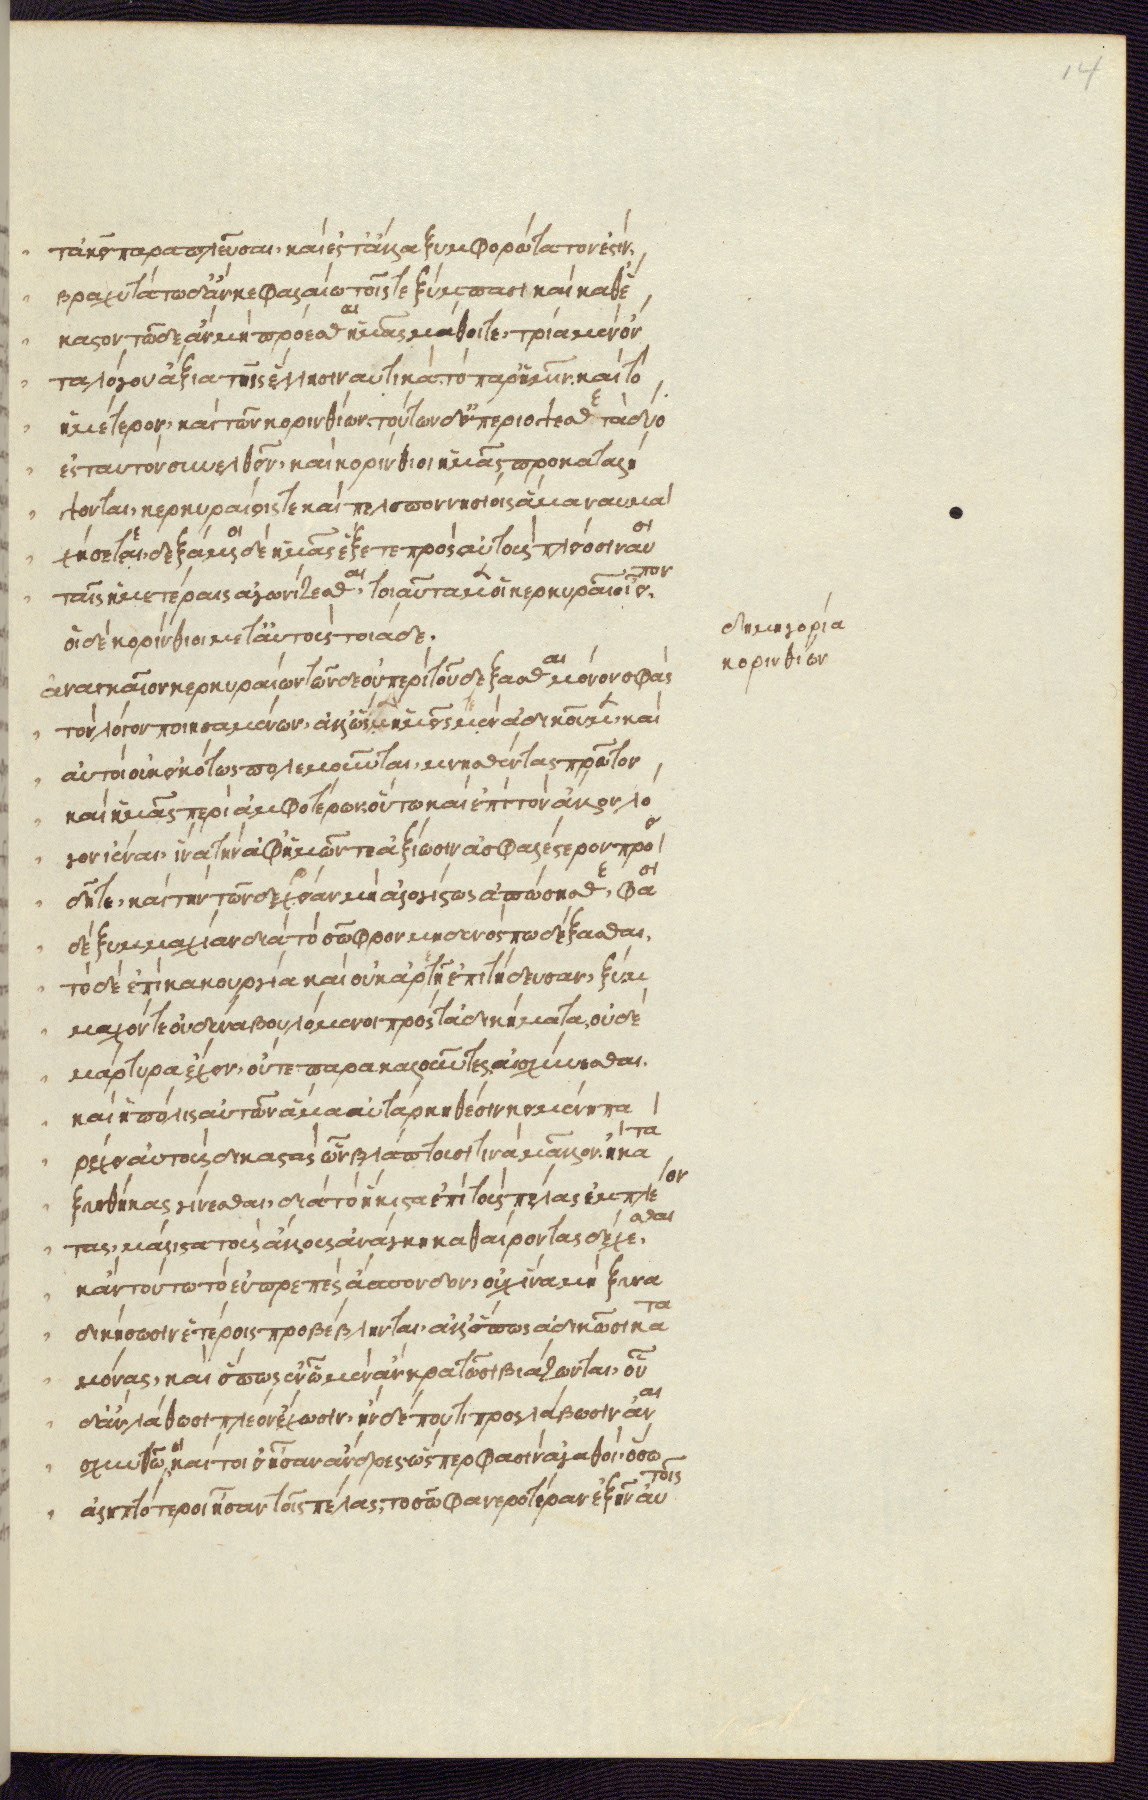 τάκεῖ παραπλεῦσαι, καὶ ἐς τἄλλα ξυμφορώτατον ἐστίν,
βραχυτάτω δ' ἂν κεφαλαίω τοῖς τε ξύμπασι καὶ καθέ
καστον τῶδε ἂν μὴ πρόεσθαι ἡμᾶς μάθοιτε, τρία μὲν ὄν
τα λόγου ἄξια τοῖς ἕλλησι ναυτικά. τὸ παρ' ὑμῖν. καὶ τὸ
ἡμέτερον, καὶ τῶν κορινθίων. τούτων δ' εἰ περιόψεσθε τὰ δύο
ἐς ταυτὸν συνελθεῖν, καὶ κορίνθιοι ἡμᾶς προκαταλή
ψονται, κερκυραίοις τε καὶ πελοποννησίοις ἅμα ναυμα
χήσετε, δεξάμενοι δὲ ἡμᾶς ἕξετε πρὸς αὐτοὺς πλείοσι ναυσὶ
ταῖς ἡμετέραις ἀγωνίζεσθαι, τοιαῦτα μὲν οἱ κερκυραῖοι εἶπον.
οἱ δὲ κορίνθιοι μετ' αὐτοὺς τοιάδε.
δημηγορία
κορινθίων
ἀναγκαῖον κερκυραίων τῶνδε οὐ περὶ τοῦ δέξασθαι μόνον σφᾶς
τὸν λόγον ποιησαμένων, ἀλλ' ὡς καὶ ἡμεῖς μὲν ἀδικοῦμεν, καὶ
αὐτοὶ οὐκ εἰκότως πολεμοῦνται, μνησθέντας πρῶτον
καὶ ἡμᾶς περὶ ἀμφοτέρων οὕτω καὶ ἐπὶ τὸν ἄλλον λό
γον ἰέναι, ἵνα τὴν ἀφ' ἡμῶν τε ἀξίωσιν ἀσφαλέστερον προει
δῆτε, καὶ τὴν τῶνδε χρείαν μὴ ἀλογίστως ἀπώσησθε, φασὶ
δὲ ξυμμαχίαν διὰ τὸ σῶφρον μηδενός πω δέξασθαι.
τὸ δὲ ἐπὶ κακουργία καὶ οὐκ ἀρετῆ ἐπιτήδευσαν, ξύμ
μαχόν τε οὐδένα βουλόμενοι πρὸς τἀδικήματα, οὐδὲ
μάρτυρα ἔχειν, οὔτε παρακαλοῦντες αἰσχύνεσθαι.
καὶ ἡ πόλις αὐτῶν ἅμα αὐτάρκη θέσιν κειμένη πα
ρέχει αὐτοὺς δικαστὰς ὧν βλάπτουσί τινα μᾶλλον. ἢ κατὰ
ξυνθήκας γίνεσθαι, διὰ τὸ ἥκιστα ἐπὶ τοὺς πέλας ἐκπλέον
τας, μάλιστα τοὺς ἄλλους ἀνάγκη καταίροντας δέχεσθαι.
κἀν τούτω τὸ εὐπρεπὲς ἄσπονδον, οὐχ ἵνα μὴ ξυνα
δικήσωσιν ἑτέροις προβέβληνται, ἀλλ' ὅπως ἀδικῶσι κατὰ
μόνας, καὶ ὅπως ἐν ᾧ μὲν ἂν κρατῶσι βιάζωνται, οὗ
δ' ἂν λάθωσι πλέον ἔχωσιν, ἢν δέ πού τι προσλάβωσιν ἀναι
σχυντῶσι, καίτοι εἰ ἦσαν ἄνδρες ὥσπερ φασὶν ἀγαθοὶ, ὅσω
ἀληπτότεροι ἦσαν τοῖς πέλας, τόσω φανεροτέραν ἐξῆν αὐτοῖς